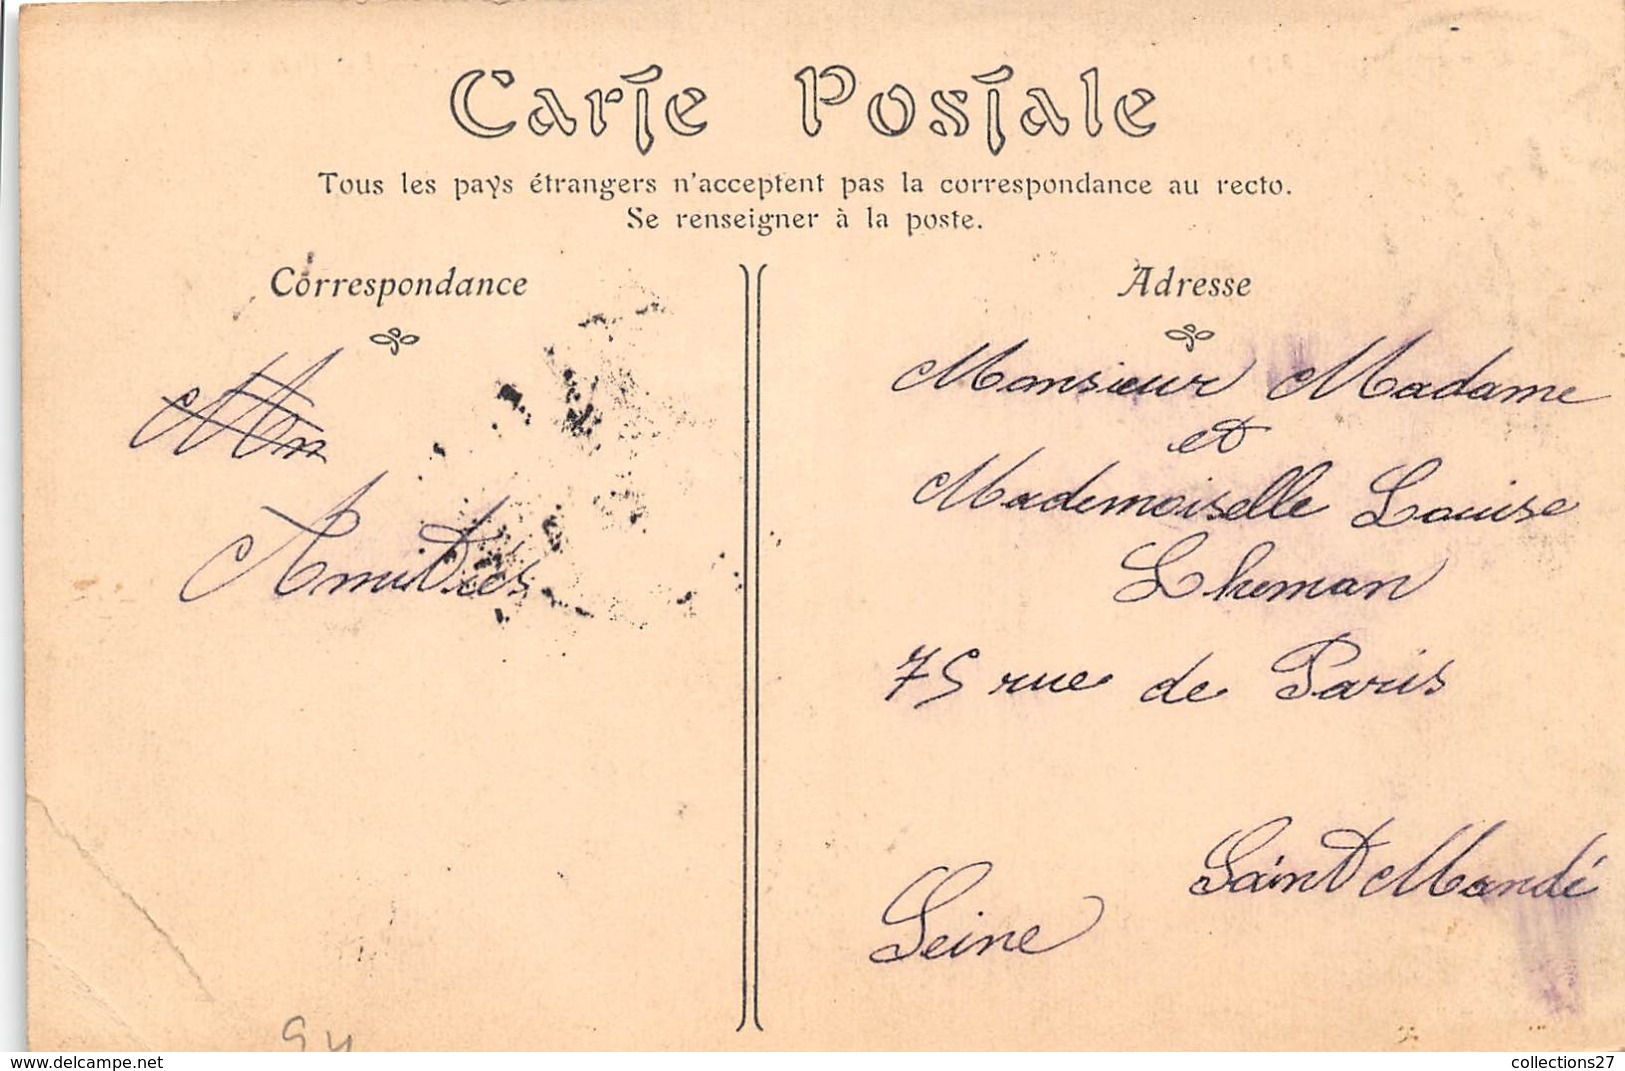 Carte Postale
Tous les pays étrangers n'acceptent pas la correspondance au recto.
Se renseigner à la poste.
Correspondance
Amitiés
Adresse
Monsieur Madame
et
Mademoiselle Louise
Lheman
75 rue de Paris
Saint Mandé
Seine
94
www.delcampe.net
collections27